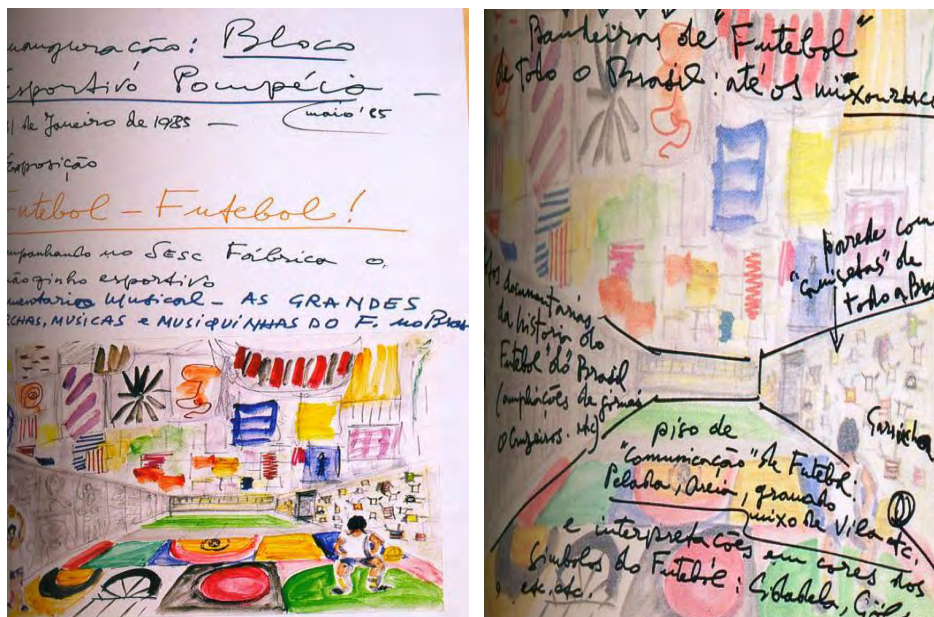 nauguração: Bloco
Esportivo Pompéia —
31 de Janeiro de 1985 —
maio '85
Exposição
Futebol – Futebol!
mpanhando no Sesc Fábrica o
ãozinho esportivo
mentario Musical – AS GRANDES
CHAS, MUSICAS e MUSIQUINHAS DO F. no Bras
Bandeiras de "Futebol"
de todo o Brasil: até os
parede com
"camisetas" de
todo o Bra
tos documentários
da história do
Futebol do Brasil
(ampliações de jornais
O Cruzeiros. etc)
Garrincha
piso de
"Comunicação" de Futebol:
Pelada, Areia, gramado
mixo de Vila etc.
e interpretações em cores dos
Símbolos do Futebol:
etc. etc.